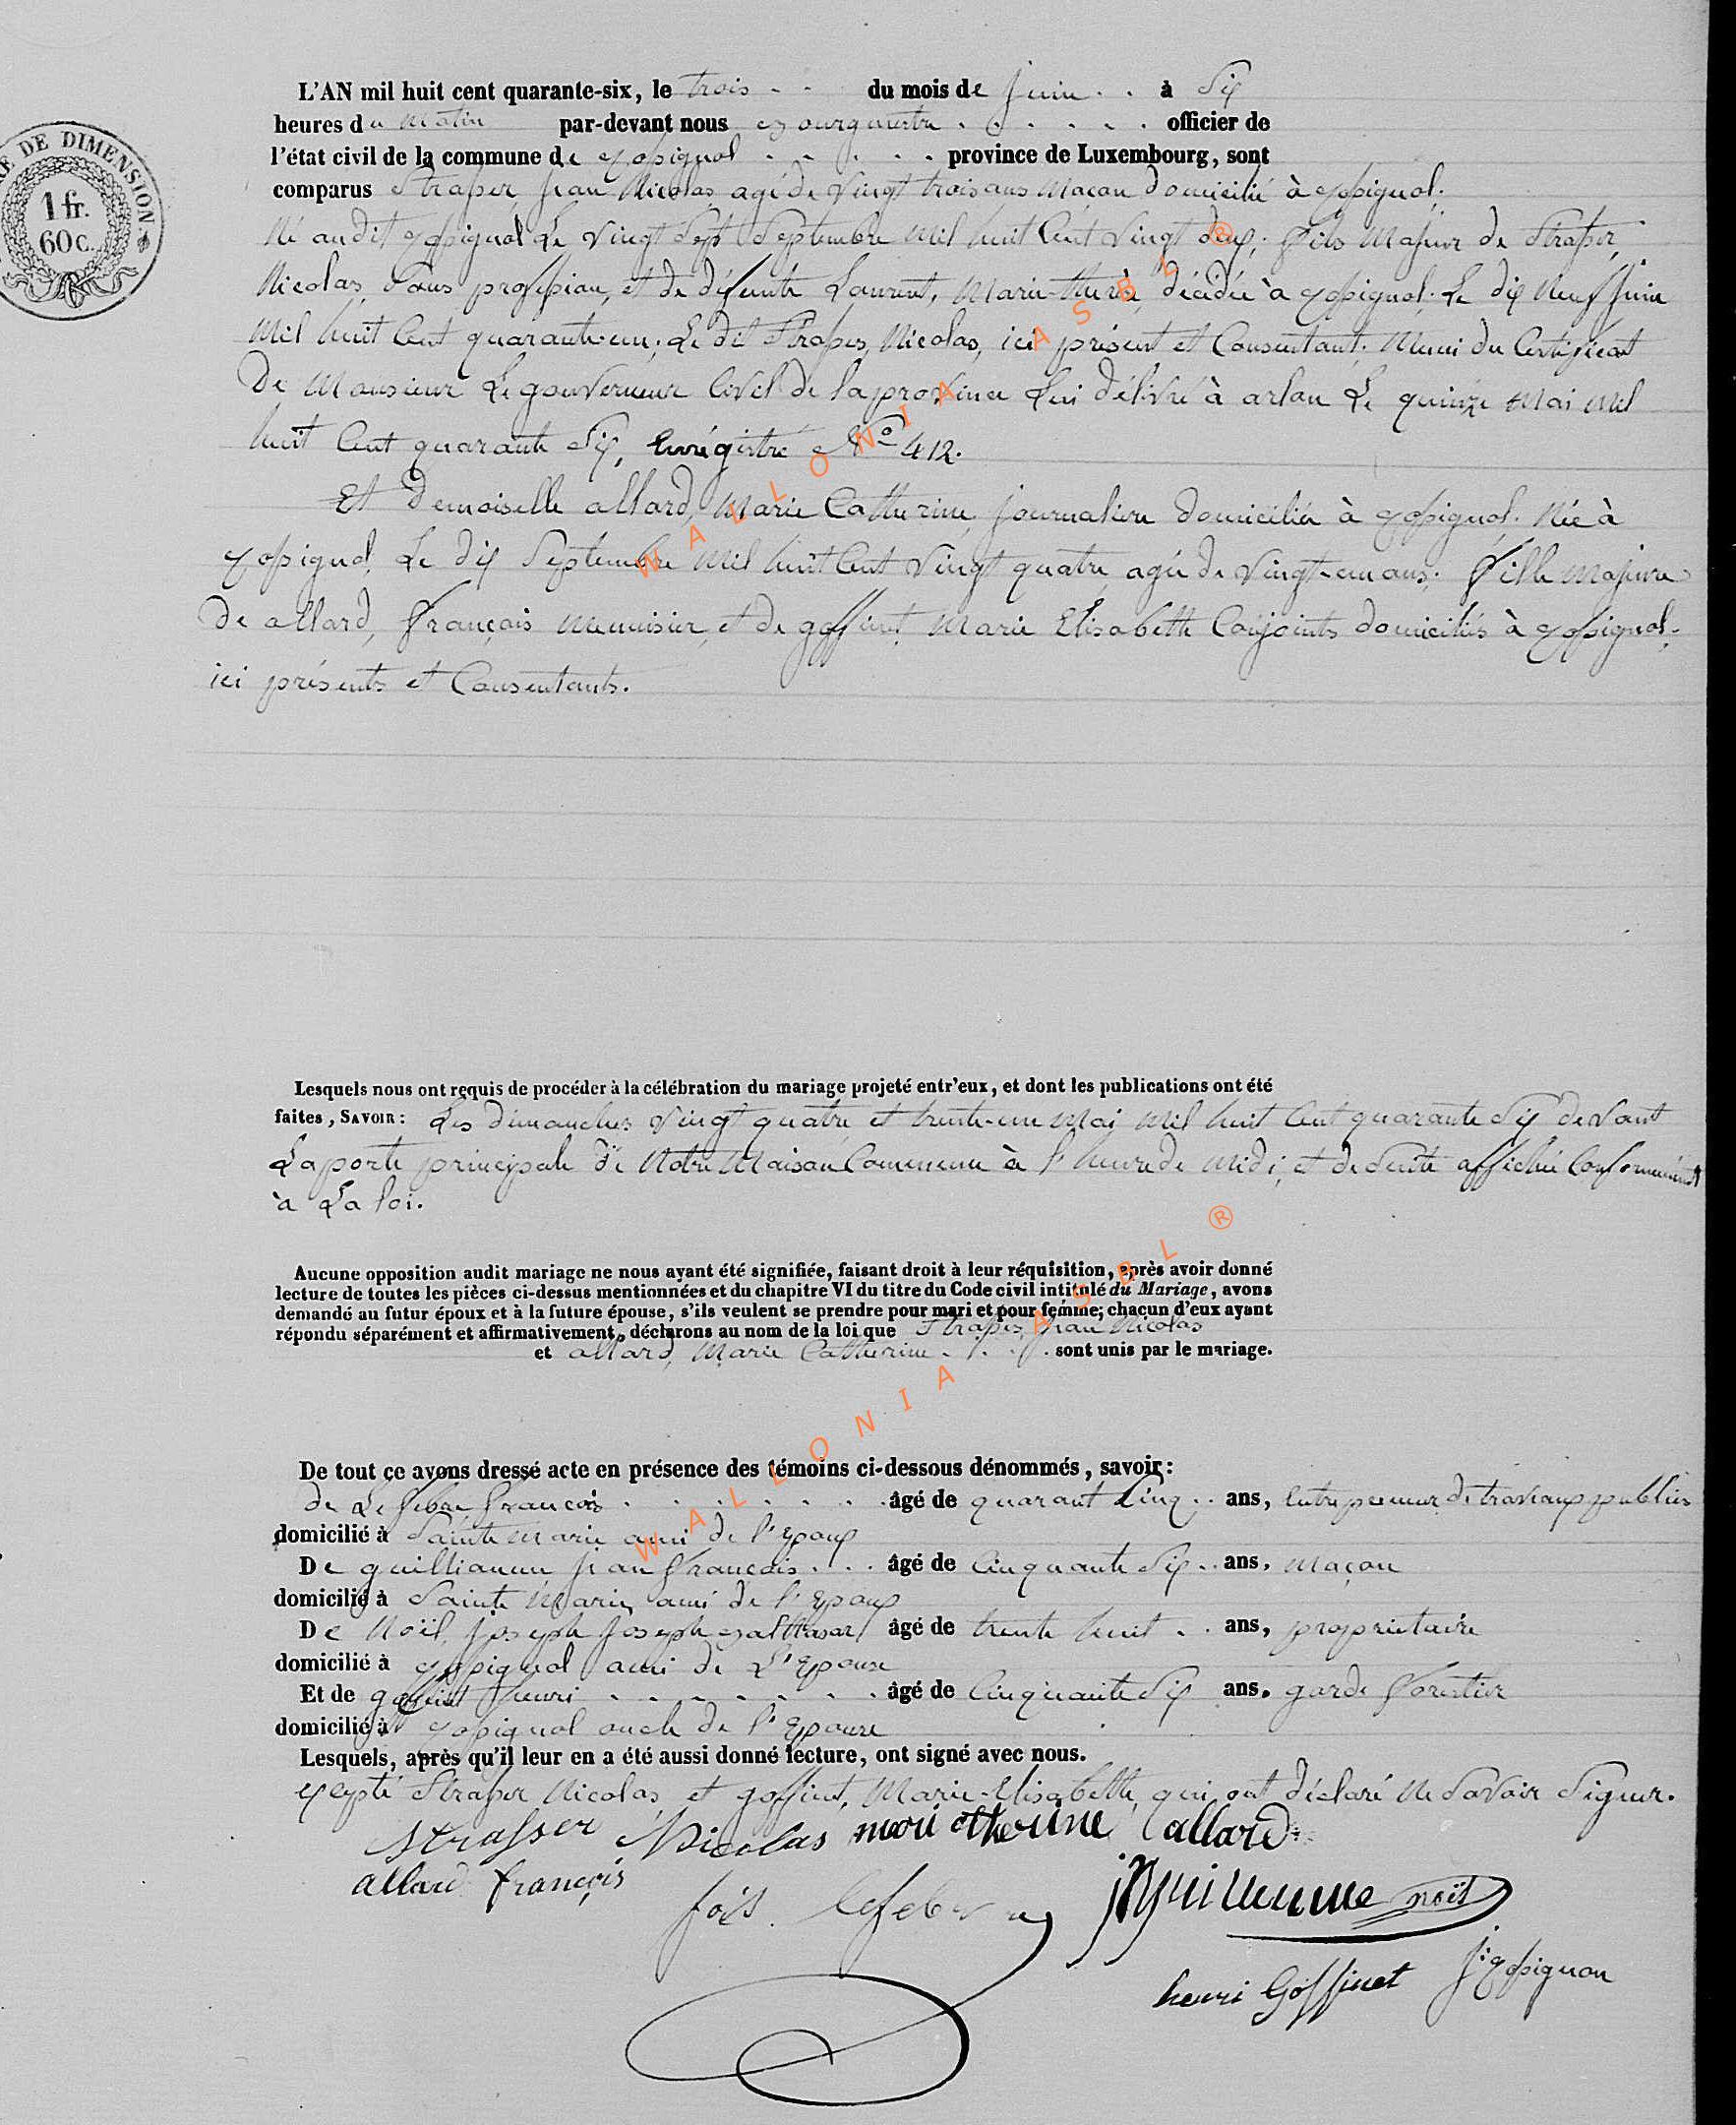 TIMBRE DE DIMENSION.
1 fr.
60 c.
L'AN mil huit cent quarante-six, le trois du mois de juin à Six
heures du matin par-devant nous Bourgmestre officier de
l'état civil de la commune de province de Luxembourg, sont
comparus Strasser jean Nicolas agé de vingt trois ans Maçon domicilié à
Né audit Le vingt Sept Septembre mil huit Cent vingt deux, fils Majeur de Strasser
Nicolas Sans profession, et de défunte Laurent, Marie-thérèse décédée à Le dix Neuf juin
mil huit Cent quarante-un; Le dit Strasser, Nicolas, ici présent et Consentant. Muni du Certificat
De Monsieur Le gouverneur Civil de la province Lui délivré à arlon Le quinze Mai mil
huit Cent quarante Six, Enrégistré No 412.
Et Demoiselle allard, Marie Catherine journalière domiciliée à Née à
Le dix Septembre mil huit Cent vingt quatre agée de vingt-un ans. fille majeure
De allard, françois menuisier, et de goffinet, Marie Elisabeth Conjoints domiciliés à
ici présents et Consentants.
Lesquels nous ont requis de procéder à la célébration du mariage projeté entr'eux, et dont les publications ont été
faites, SAVOIR: Les dimanches vingt quatre et trente-un Mai mil huit Cent quarante Six devant
La porte principale de Notre Maison Commune à l'heure de midi, et de Suite affichée Conformément
à La loi.
Aucune opposition audit mariage ne nous ayant été signifiée, faisant droit à leur réquisition, après avoir donné
lecture de toutes les pièces ci-dessus mentionnées et du chapitre VI du titre du Code civil intitulé du Mariage, avons
demandé au futur époux et à la future épouse, s'ils veulent se prendre pour mari et pour femme; chacun d'eux ayant
répondu séparément et affirmativement, déclarons au nom de la loi que Strasser, jean Nicolas
et allard, Marie Catherine sont unis par le mariage.
De tout ce avons dressé acte en présence des témoins ci-dessous dénommés, savoir:
de Lefebre françois âgé de quarante Cinq ans, Entrepreneur de travaux publics
domicilié à Sainte Marie ami de l'Epoux
De guilliaume jean françois âgé de Cinquante Six ans, Maçon
domicilié à Sainte Marie ami de l'Epoux
De Noël, joseph joseph Balthasar âgé de trente huit ans, propriétaire
domicilié à ami de L'Epouse
Et de goffinet henri âgé de Cinquante Six ans, garde forestier
domicilié à oncle de l'Epouse
Lesquels, après qu'il leur en a été aussi donné lecture, ont signé avec nous.
Strasser Nicolas et goffinet, Marie-Elisabeth, qui ont déclaré Ne Savoir Signer.
Strasser Nicolas allard
allard françois
fois Lefebvre noël
henri Goffinet
WALLONIA ASBL ®
WALLONIA ASBL ®